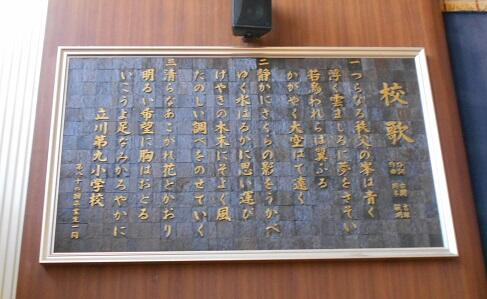 校歌
一 つらなる秩父の峯は青く
浮く雲ましろに夢をさそい
若鳥われらは翼ふる
かがやく大空はて遠く
二 静かにさくらの影をうかべ
ゆく水はるかに思い運び
けやきの木末にそよぐ風
たのしい調べをのせていく
三 清らなあこがれ花とかおり
明るい希望に胸はおどる
いこうよ足なみかろやかに
立川第九小学校